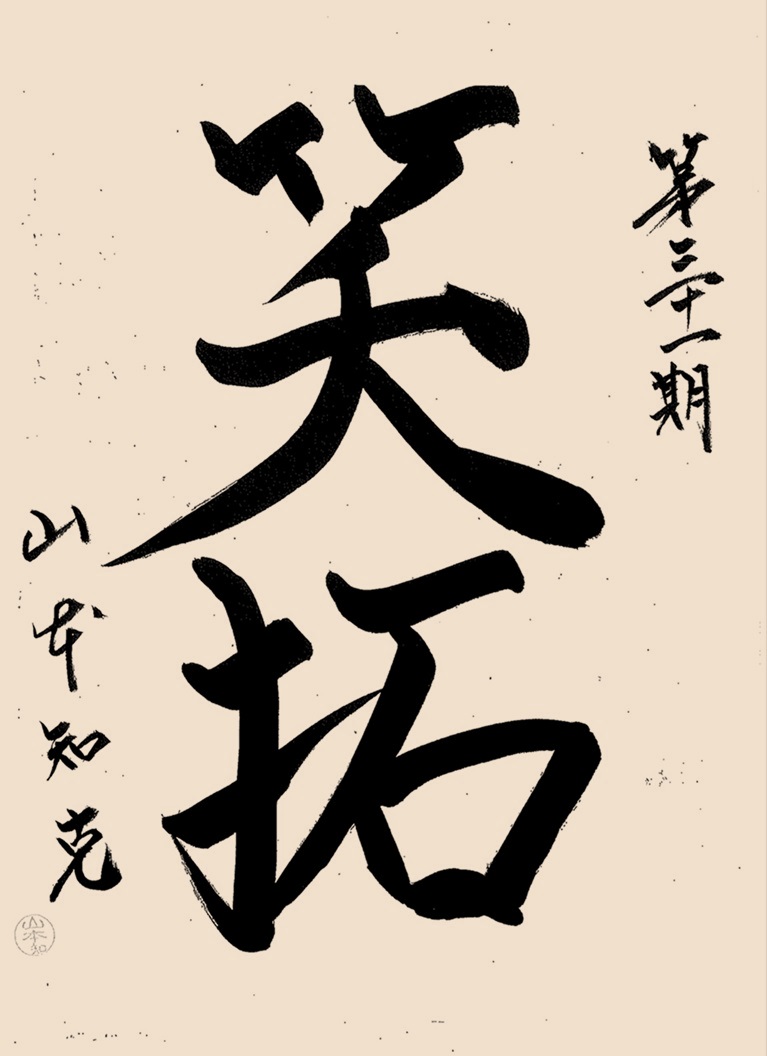 第三十一期
笑拓
山本知克
山本